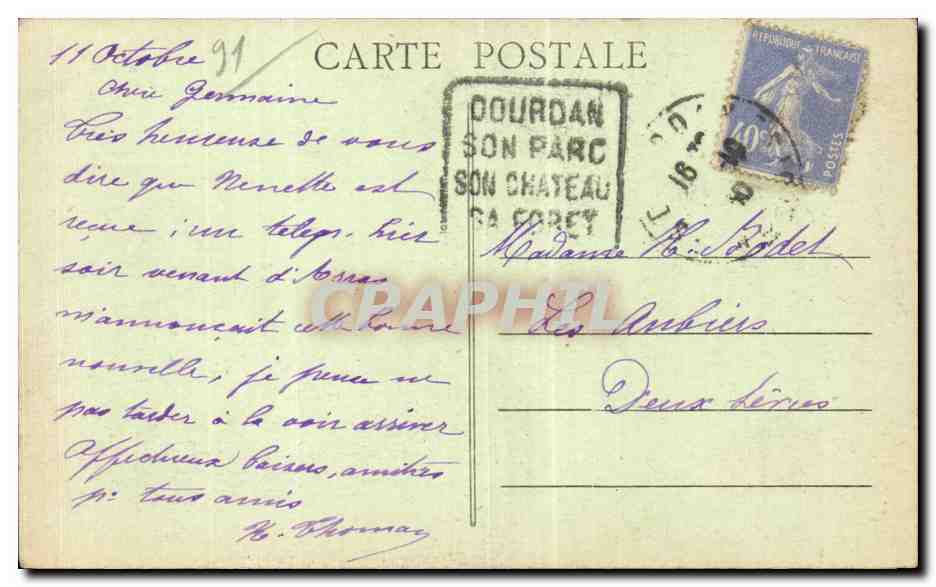 CARTE POSTALE
91
11 Octobre
Chère Germaine
très heureuse de vous
dire que Nenette est
reçue, un telegr. hier
soir venant d'Arras
m'annonçait cette bonne
nouvelle, je pense ne
pas tarder à la voir arriver
affectueux baisers, amitiés
pr tous amis
H. Thomas
DOURDAN
SON PARC
SON CHATEAU
SA FORET
REPUBLIQUE FRANÇAISE
40c
POSTES
16
Madame H. Bodet
Les Aubiers
Deux Sèvres
CPAPHIL